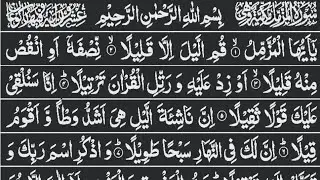 بِسْمِ اللهِ الرَّحْمٰنِ الرَّحِيْمِ
يٰٓاَيُّهَا الْمُزَّمِّلُ ۙ۝۱ قُمِ الَّيْلَ اِلَّا قَلِيْلًا ۙ۝۲ نِّصْفَهٗٓ اَوِ انْقُصْ
مِنْهُ قَلِيْلًا ۙ۝۳ اَوْ زِدْ عَلَيْهِ وَ رَتِّلِ الْقُرْاٰنَ تَرْتِيْلًا ؕ۝۴ اِنَّا سَنُلْقِيْ
عَلَيْكَ قَوْلًا ثَقِيْلًا ۝۵ اِنَّ نَاشِئَةَ الَّيْلِ هِيَ اَشَدُّ وَطْاً وَّ اَقْوَمُ
قِيْلًا ؕ۝۶ اِنَّ لَكَ فِي النَّهَارِ سَبْحًا طَوِيْلًا ؕ۝۷ وَ اذْكُرِ اسْمَ رَبِّكَ وَ